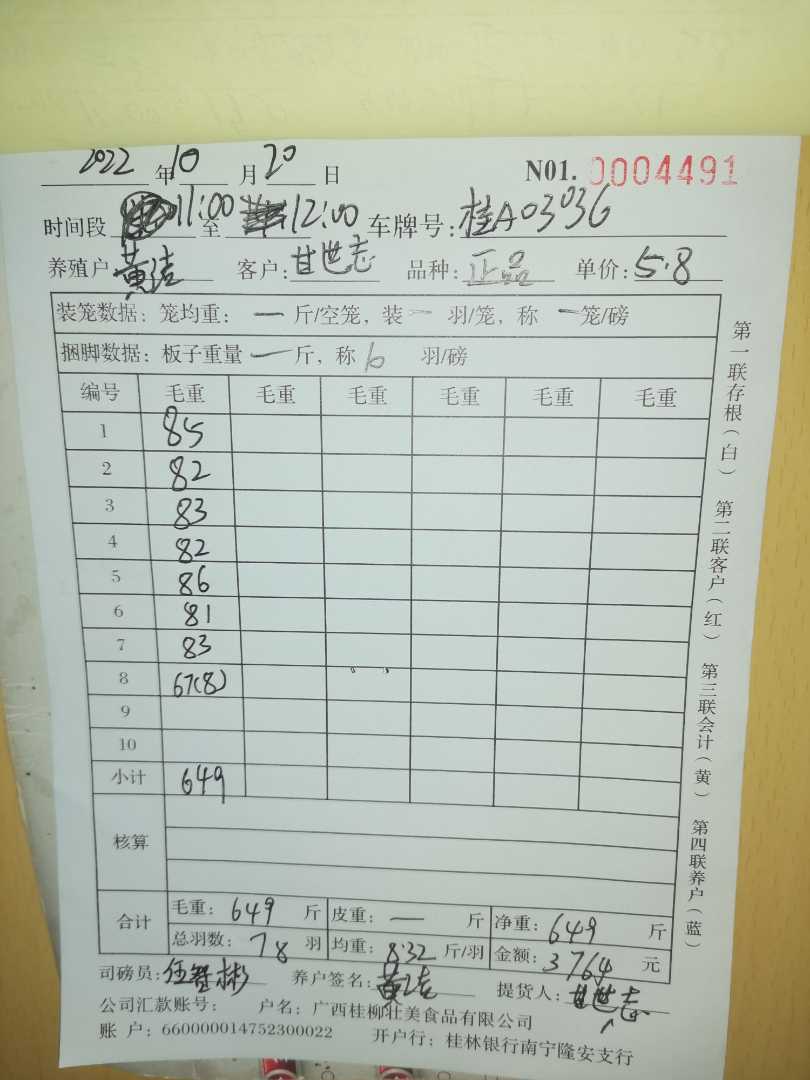 2022 年 10 月 20 日 N01. 0004491
时间段 11:00 至 12:00 车牌号: 桂A03036
养殖户 黄洁 客户: 甘世志 品种: 正品 单价: 5.8
装笼数据: 笼均重: 一 斤/空笼, 装 一 羽/笼, 称 一 笼/磅
捆脚数据: 板子重量 一 斤, 称 6 羽/磅
编号 毛重 毛重 毛重 毛重 毛重 毛重
1 85
2 82
3 83
4 82
5 86
6 81
7 83
8 67(8)
9
10
小计 649
核算
合计 毛重: 649 斤 皮重: 一 斤 净重: 649 斤
总羽数: 78 羽 均重: 8.32 斤/羽 金额: 3764 元
司磅员: 伍智彬 养户签名: 黄洁 提货人: 甘世志
公司汇款账号: 户名: 广西桂柳壮美食品有限公司
账 户: 660000014752300022 开户行: 桂林银行南宁隆安支行
第一联存根(白) 第二联客户(红) 第三联会计(黄) 第四联养户(蓝)